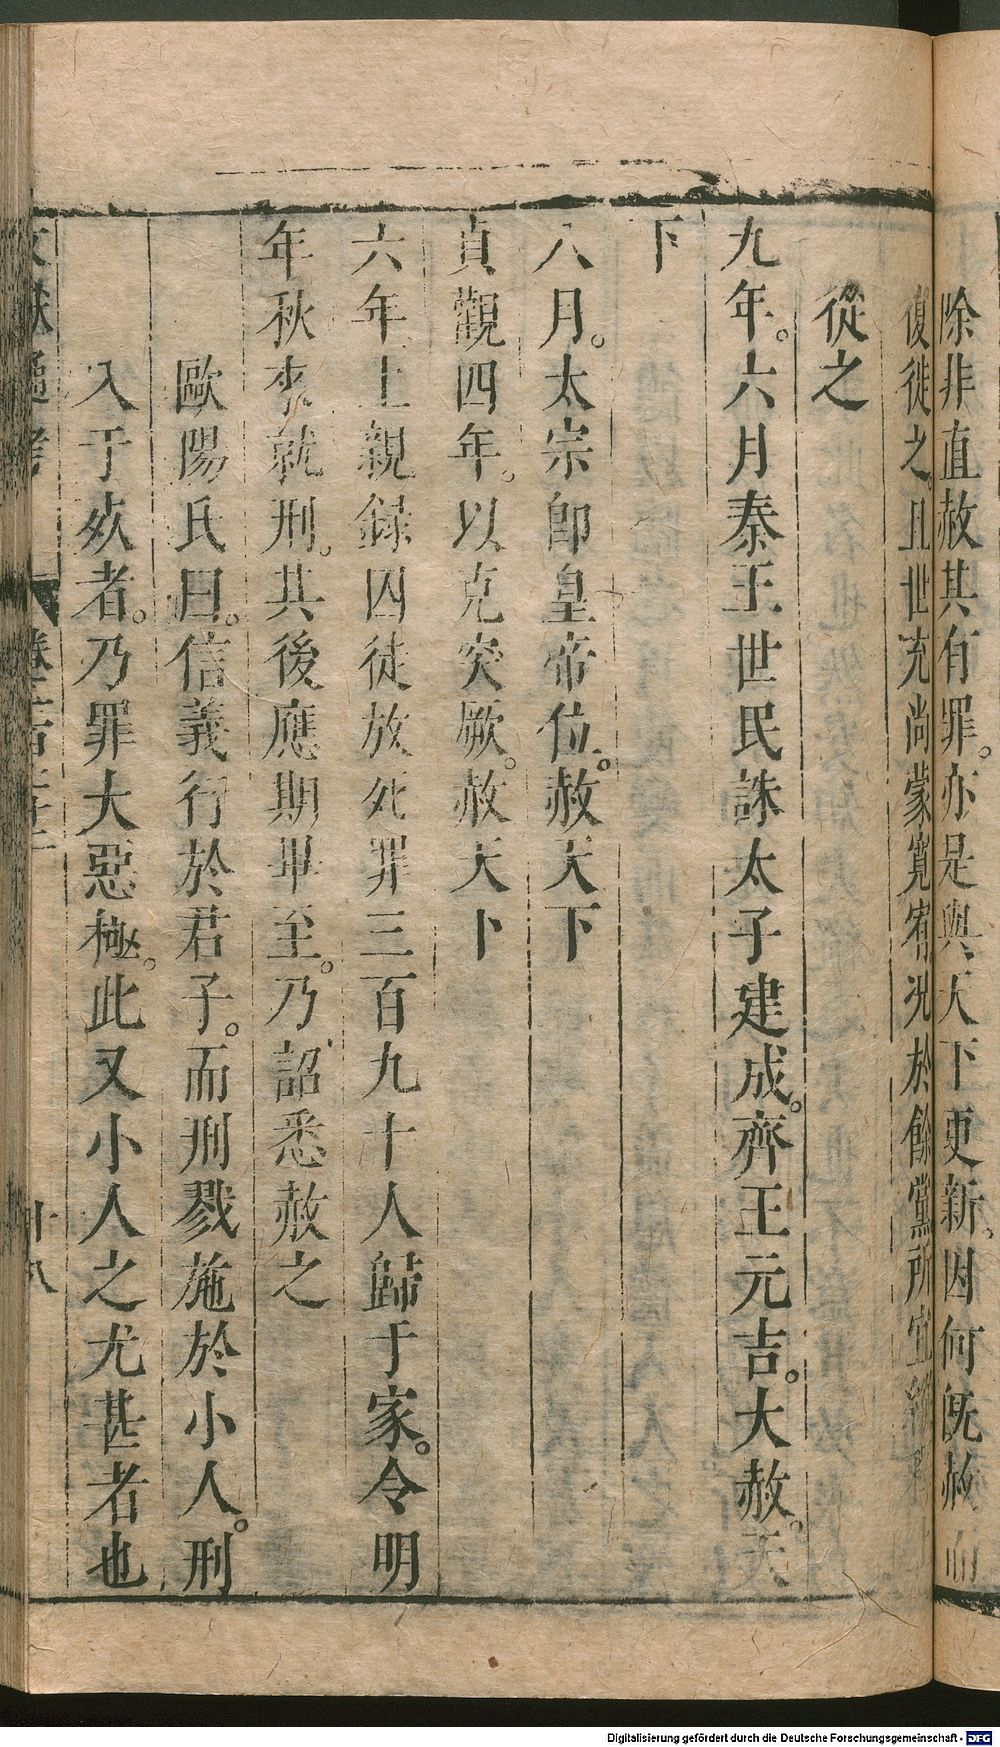 除非直赦其有罪。亦是與天下更新。因何旣赦而
復徙之。且世充尚蒙寛宥。况於餘黨所宜
從之
九年。六月秦王世民誅太子建成。齊王元吉。大赦。天
下
八月。太宗卽皇帝位。赦天下
貞觀四年。以克突厥。赦天下
六年。上親録囚徒放死罪三百九十人歸于家。令明
年秋來就刑。其後應期畢至。乃詔悉赦之
歐陽氏曰。信義行於君子。而刑戮施於小人。刑
入于死者。乃罪大惡極。此又小人之尤甚者也
十八
Digitalisierung gefördert durch die Deutsche Forschungsgemeinschaft - DFG